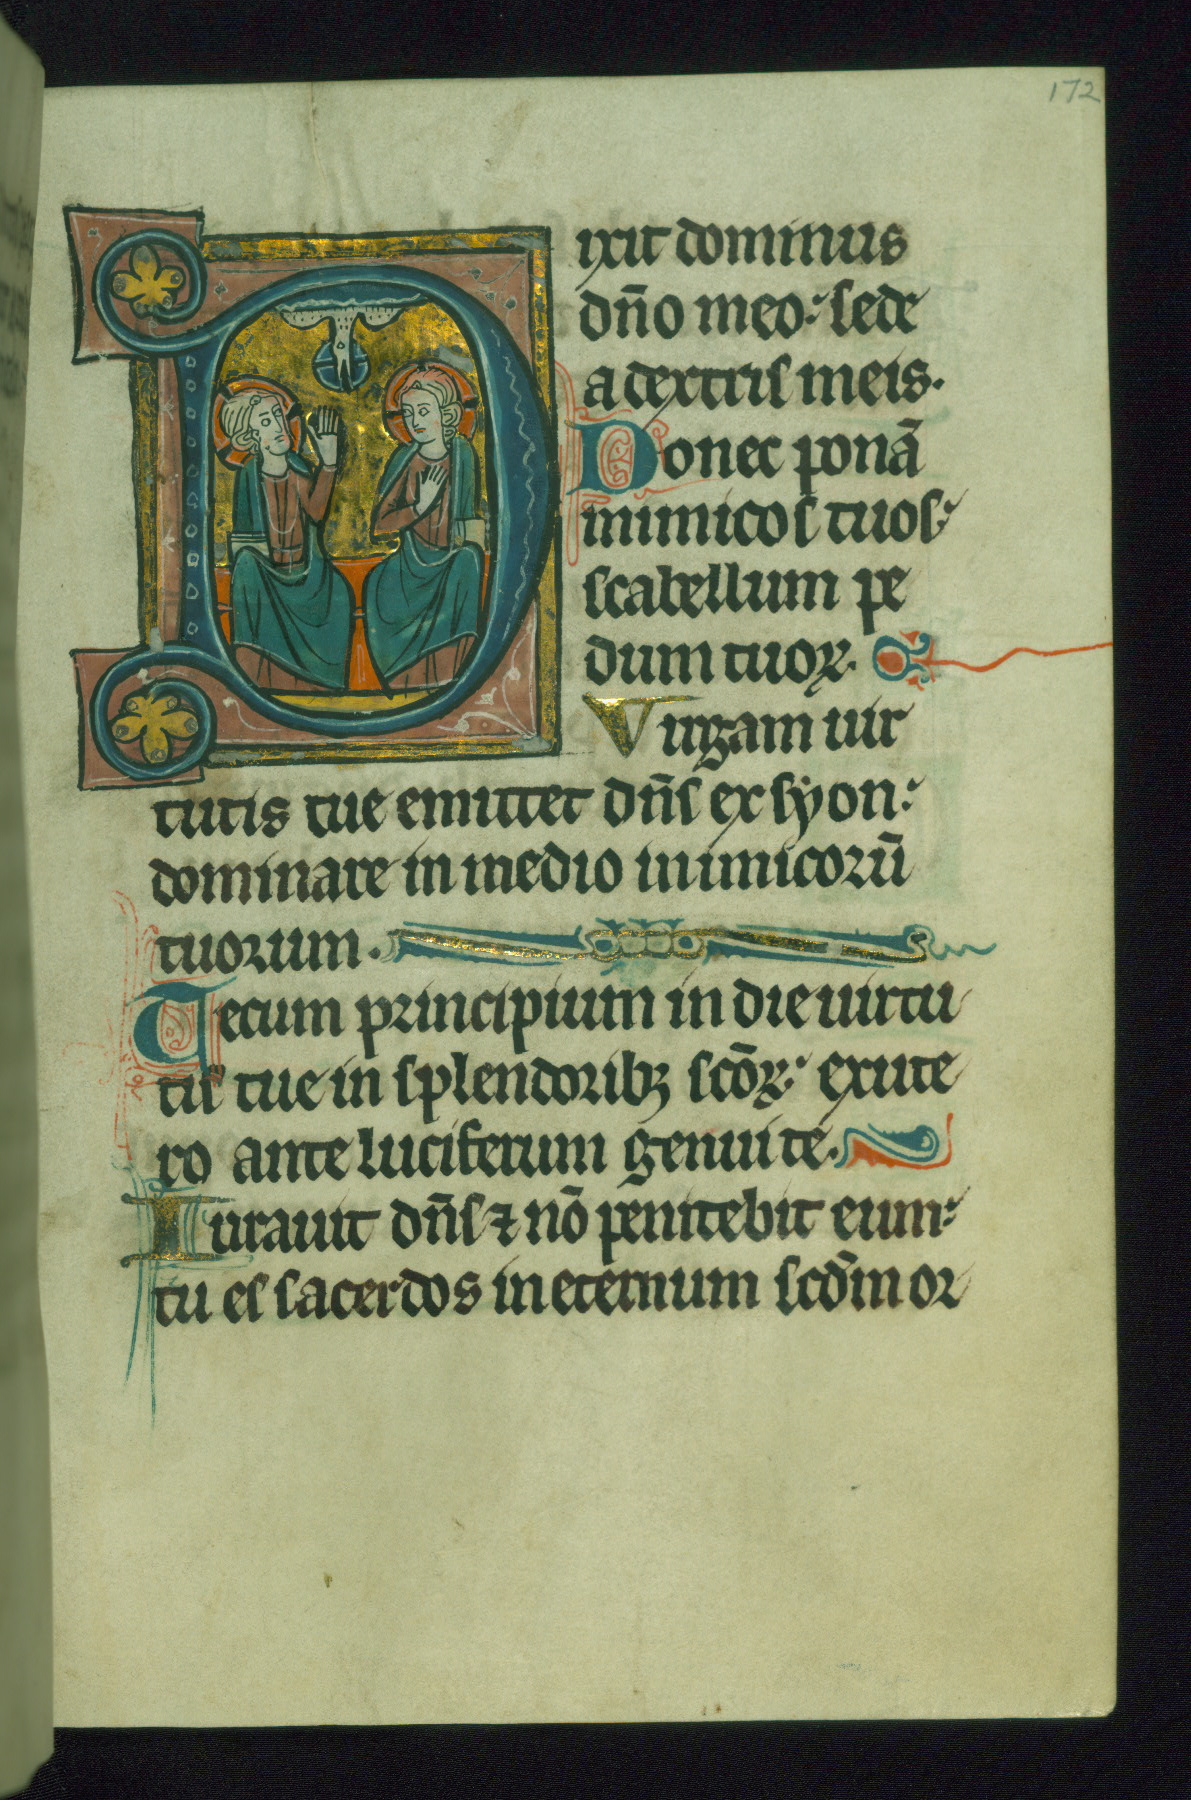 172
Dixit dominus
dño meo: sede
a dextris meis.
Donec ponã
inimicos tuos:
scabellum pe
dum tuoꝝ.
Virgam uir
tutis tue emittet dñs ex syon:
dominare in medio inimicorũ
tuorum.
Tecum principium in die uirtu
tis tue in splendoribꝫ scõꝝ: ex ute
ro ante luciferum genui te.
Iurauit dñs ⁊ nõ penitebit eum:
tu es sacerdos in eternum scd̃m or